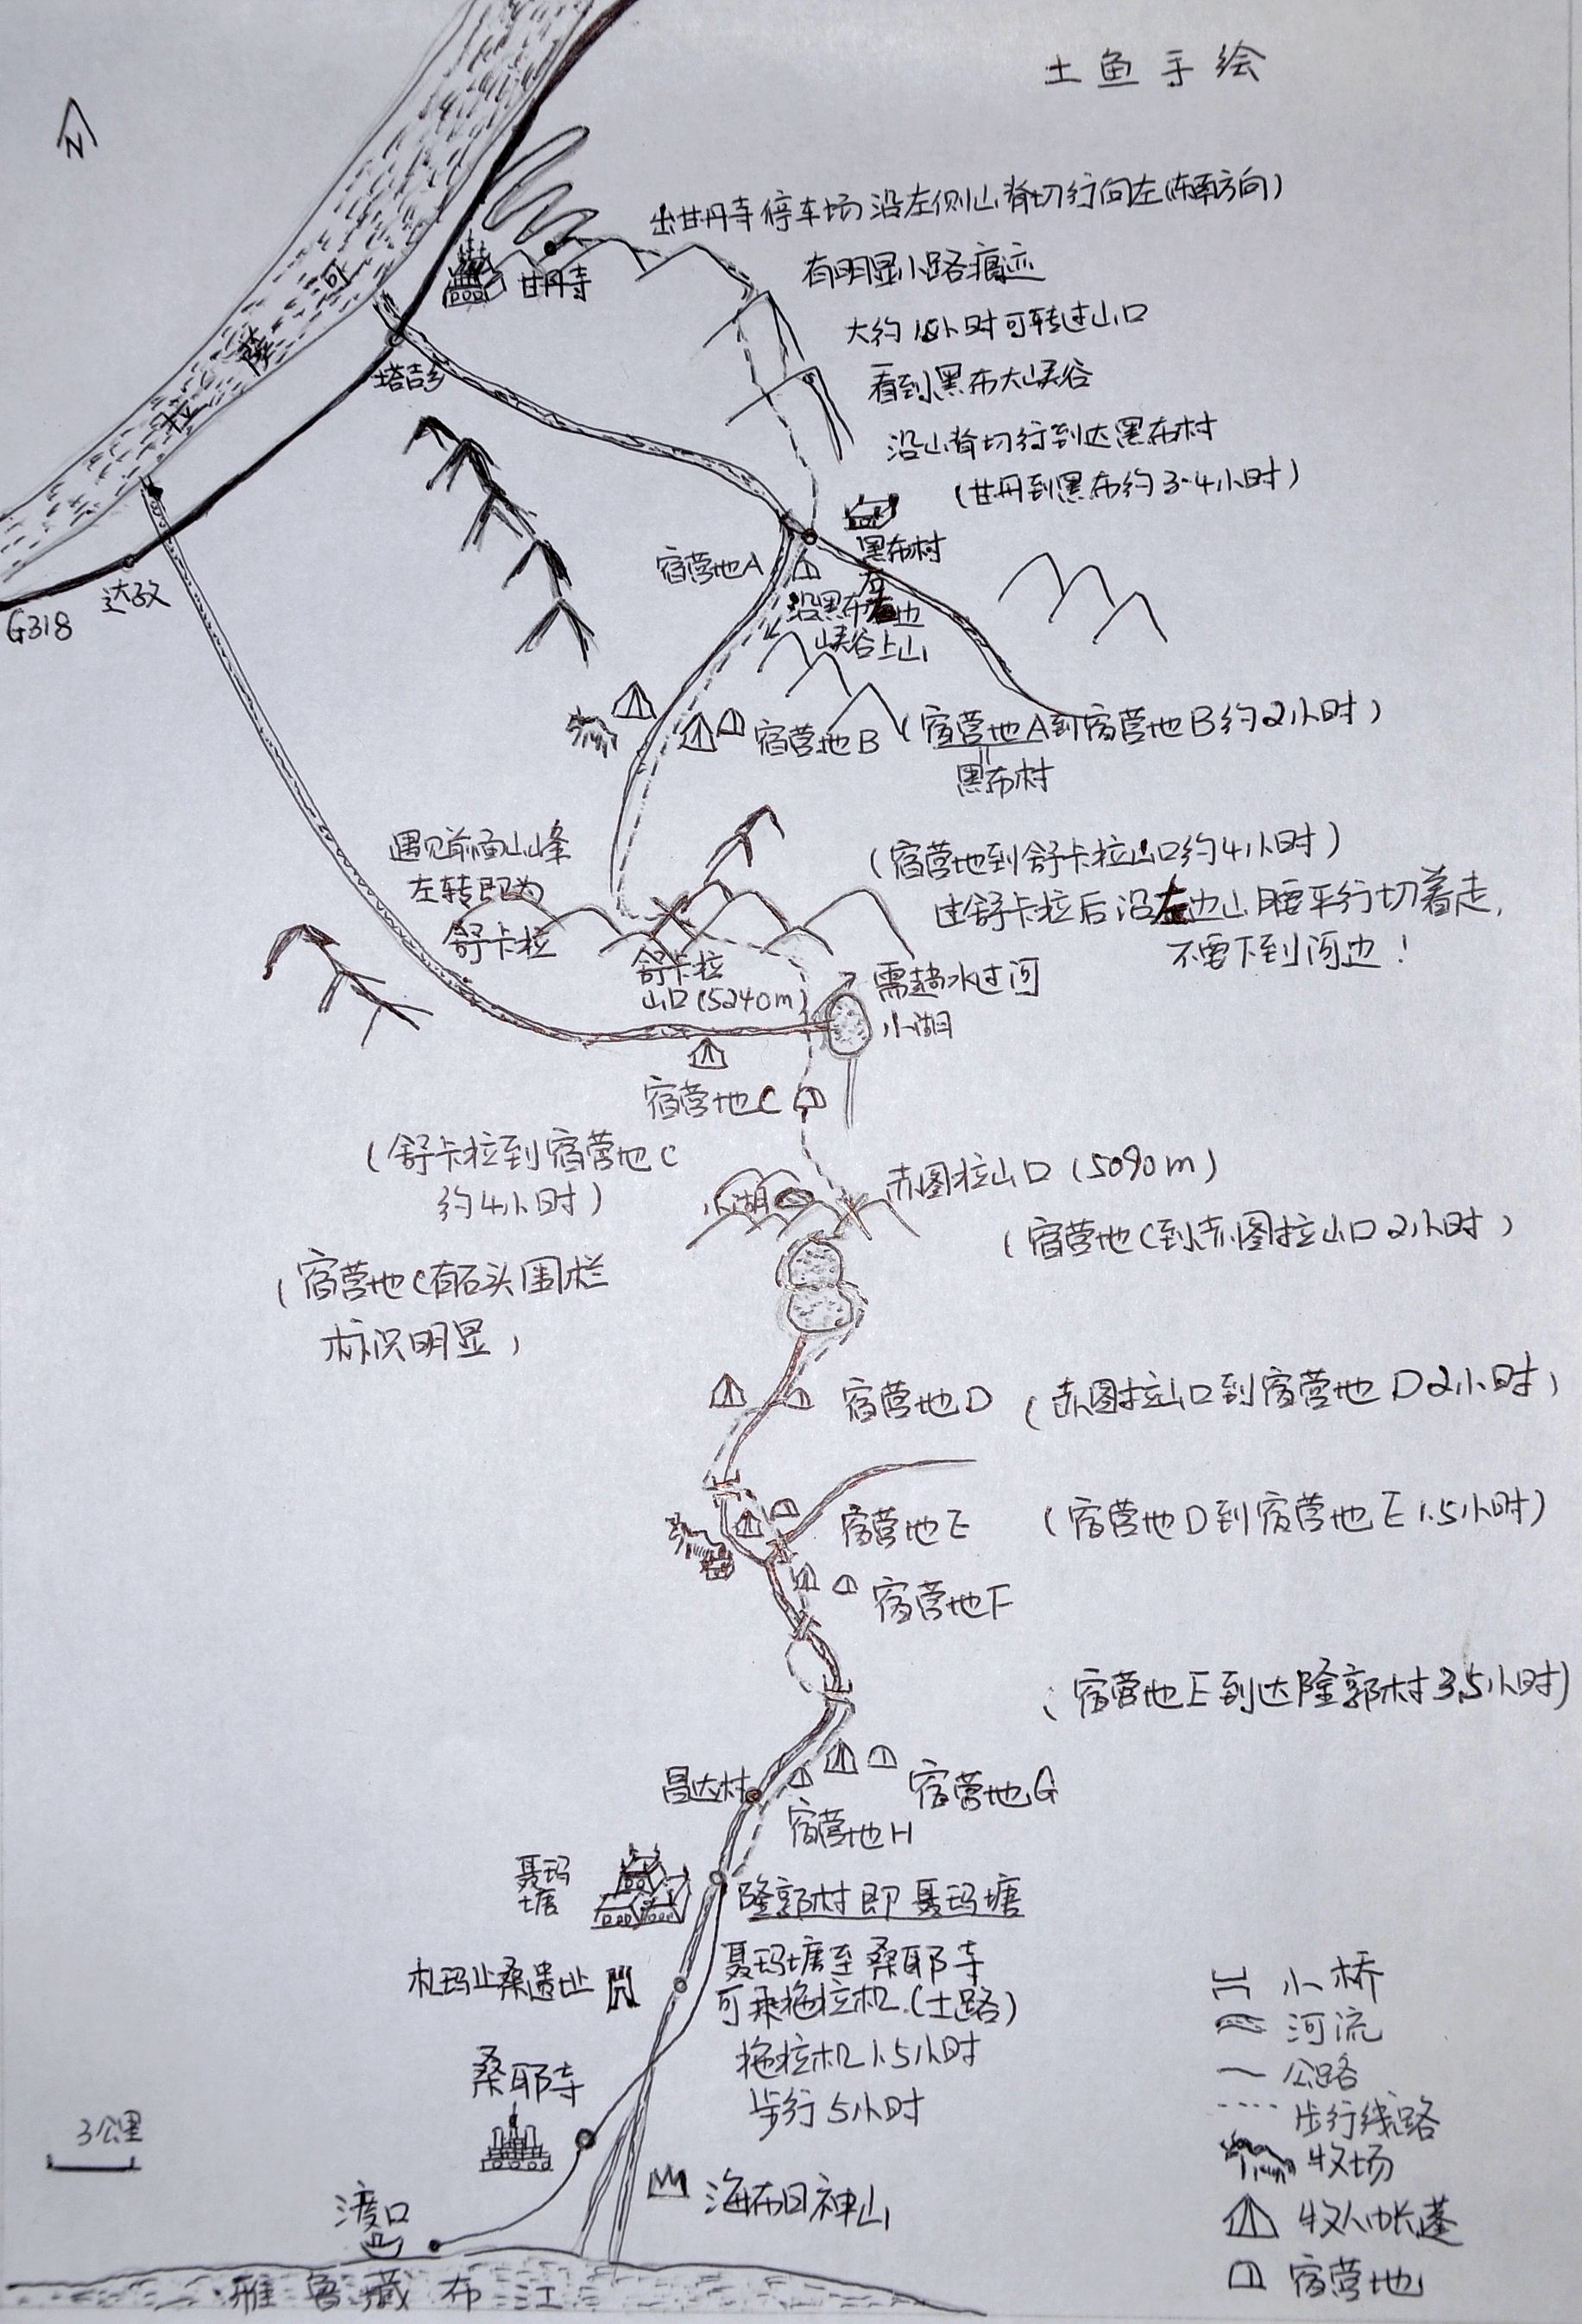 土鱼手绘
N
出甘丹寺停车场沿左侧山脊切行向左(东南方向)
有明显小路痕迹
大约1小时可转过山口
看到黑布大峡谷
沿山脊切行到达黑布村
(甘丹到黑布约3-4小时)
甘丹寺
拉萨河
塔吉乡
达孜
G318
黑布村
宿营地A
沿黑布
峡谷上山
宿营地B
(宿营地A到宿营地B约2小时)
黑布村
遇见前面山峰
左转即为
舒卡拉
(宿营地到舒卡拉山口约4小时)
过舒卡拉后沿左边山腰平行切着走,
不要下到河边!
舒卡拉
山口(5240m)
需趟水过河
小湖
宿营地C
(舒卡拉到宿营地C
约4小时)
小湖
赤图拉山口(5090m)
(宿营地C到赤图拉山口2小时)
(宿营地C有石头围栏
标识明显)
宿营地D
(赤图拉山口到宿营地D2小时)
宿营地E
(宿营地D到宿营地E1.5小时)
宿营地F
(宿营地E到达隆郭村3.5小时)
昌达村
宿营地G
宿营地H
聂玛
塘
隆郭村即聂玛塘
聂玛塘至桑耶寺
可乘拖拉机.(土路)
拖拉机1.5小时
步行5小时
札玛止桑遗址
桑耶寺
3公里
渡口
海布日神山
雅鲁藏布江
小桥
河流
公路
步行线路
牧场
牧人帐蓬
宿营地